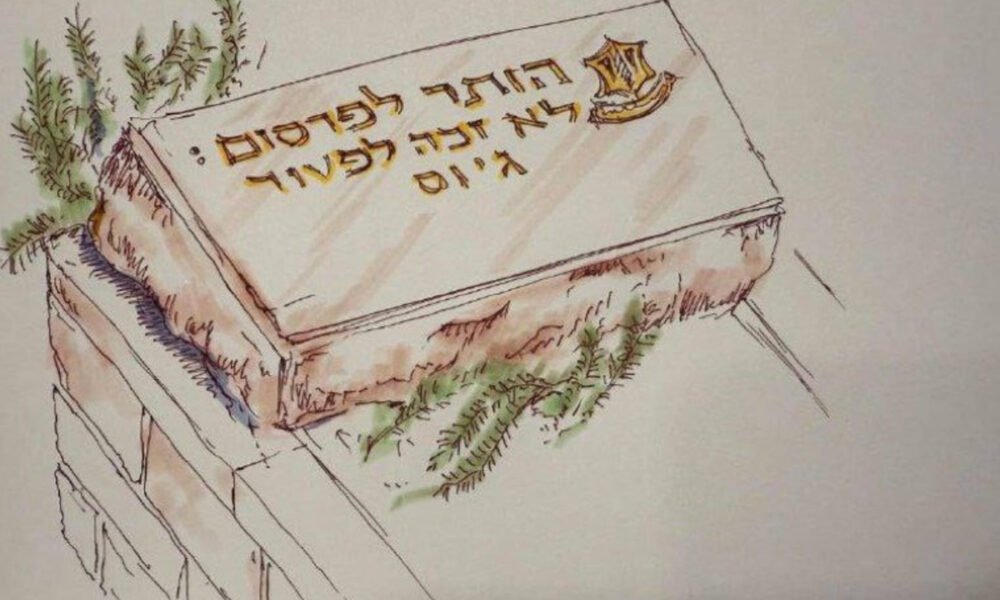 הותר לפרסום:
לא זכה לפטור
גיוס